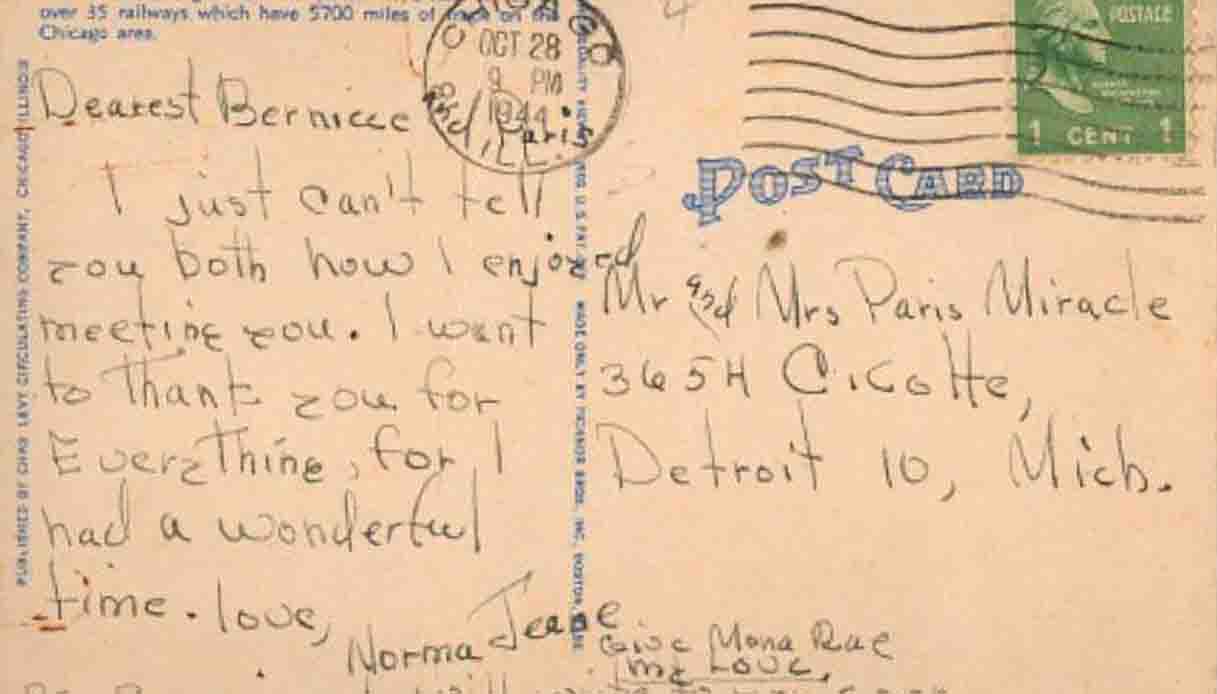 over 35 railways which have 5700 miles of track on the
Chicago area.
Dearest Berniece
and Paris
I just can't tell
you both how I enjoyed
meeting you. I want
to Thank you for
EveryThing, for I
had a wonderful
time. love,
Norma Jeane
PUBLISHED BY CHAS LEVY CIRCULATING COMPANY, CHICAGO ILLINOIS
CHICAGO
OCT 28
9 PM
1944
ILL.
POSTAGE
1 CENT 1
POST CARD
Mr and Mrs Paris Miracle
3654 Cicotte,
Detroit 10, Mich.
Give Mona Rae
my Love.